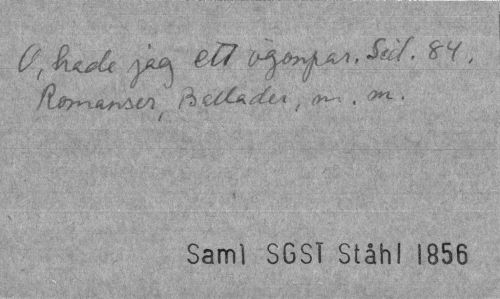 O, hade jag ett ögonpar. Sid. 84.
Romanser, Ballader, m. m.
Saml SGST Ståhl 1856